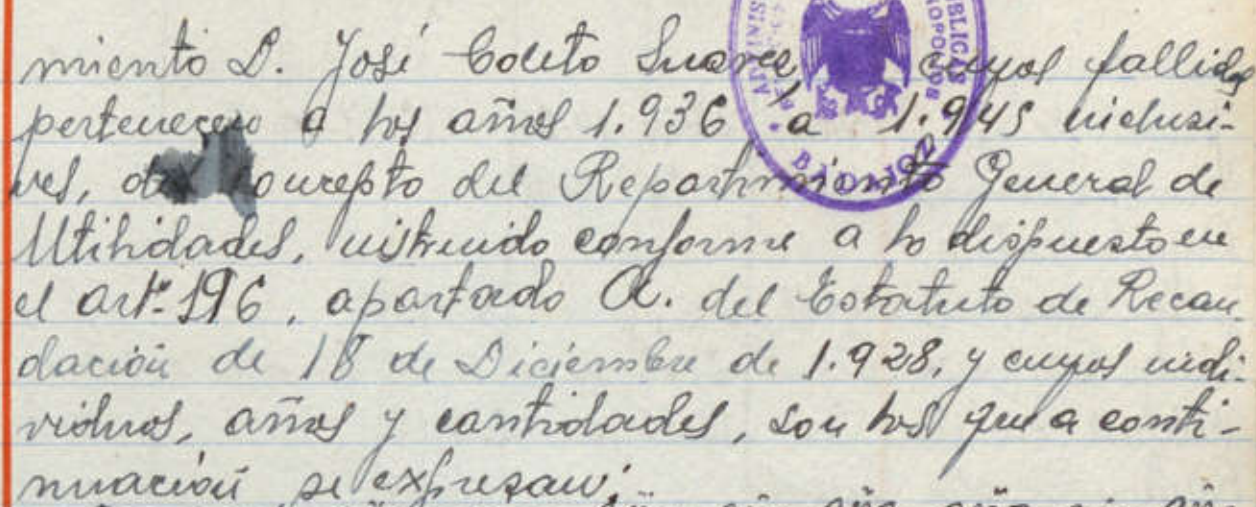 miento D. José Coleto Suarez, cuyos fallidos
pertenecen a los años 1.936 a 1.945 inclusi-
ves, del concepto del Repartimiento General de
Utilidades, instruido conforme a lo dispuesto en
el artº 196, apartado A. del Estatuto de Recau
dación de 18 de Diciembre de 1.928, y cuyos indi-
viduos, años y cantidades, son los que a conti-
nuación se expresan:
BADAJOZ